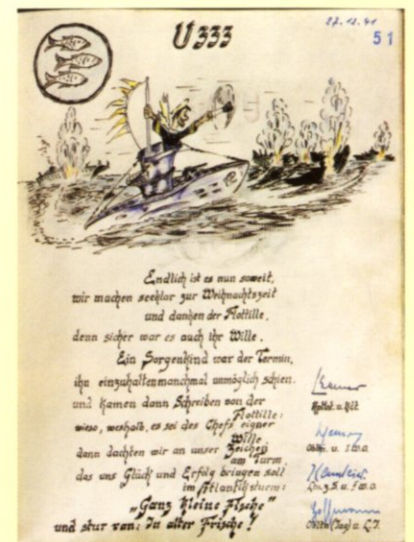 27.12.41
U 333
51
Endlich ist es nun soweit,
wir machen seeklar zur Weihnachtszeit
und danken der Flottille,
denn sicher war es auch ihr Wille.
Ein Sorgenkind war der Termin,
ihn einzuhalten manchmal unmöglich schien.
und kamen dann Schreiben von der
Flottille:
wieso, weshalb, es sei des Chefs eigner
Wille
dann dachten wir an unser Zeichen
am Turm,
das uns Glück und Erfolg bringen soll
im Atlantiksturm:
"Ganz kleine Fische"
und stur ran: In alter Frische!
Kaptlt. u. Kdt.
Oblt. u. I W.O.
Oblt. (Ing) u. L.I.